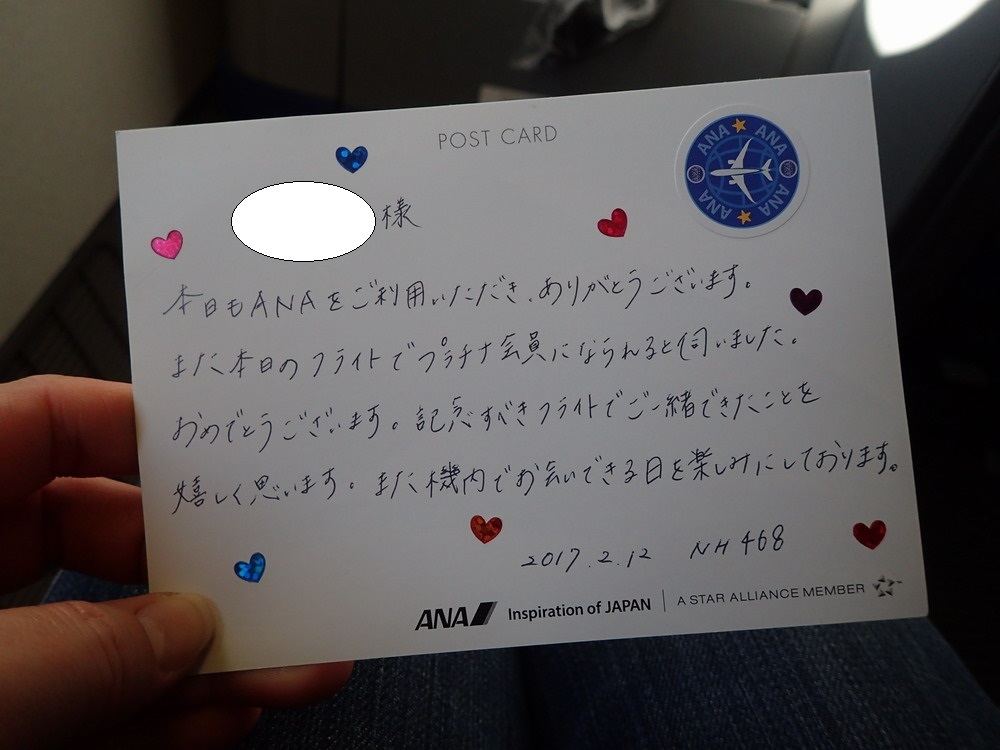 POST CARD
ANA ANA
ANA ANA
様
本日もANAをご利用いただき、ありがとうございます。
また本日のフライトでプラチナ会員になられると伺いました。
おめでとうございます。記念すべきフライトでご一緒できたことを
嬉しく思います。また機内でお会いできる日を楽しみにしております。
2017.2.12 NH468
ANA Inspiration of JAPAN A STAR ALLIANCE MEMBER